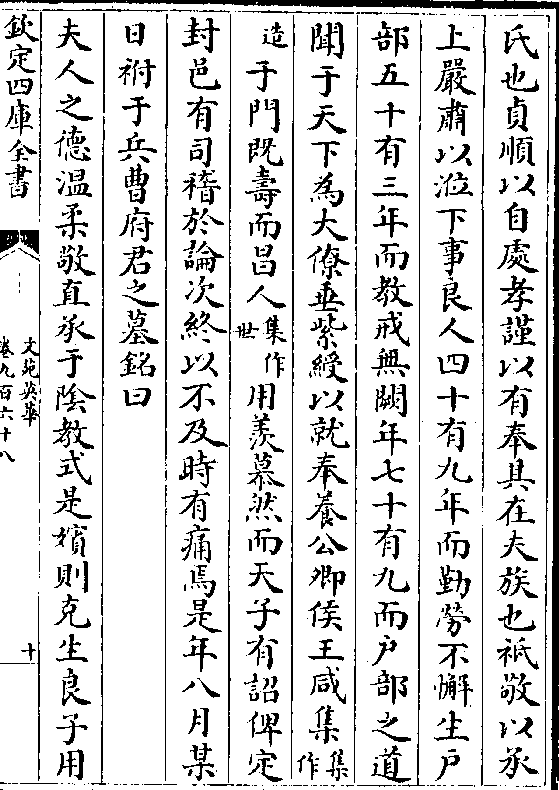 氏也貞順以自處孝謹以有奉其在夫族也祗敬以承
上嚴肅以涖下事良人四十有九年而勤勞不懈生户
部五十有三年而教戒無闕年七十有九而户部之道
聞于天下為大僚垂紫綬以就奉養公卿侯王咸集集作
造于門既壽而昌人集作世用羨慕然而天子有詔俾定
封邑有司稽於論次終以不及時有痛焉是年八月某
日祔于兵曹府君之墓銘曰
夫人之德温柔敬直承于陰教式是嬪則克生良子用
欽定四庫全書
文苑英華
卷九百六十八
十